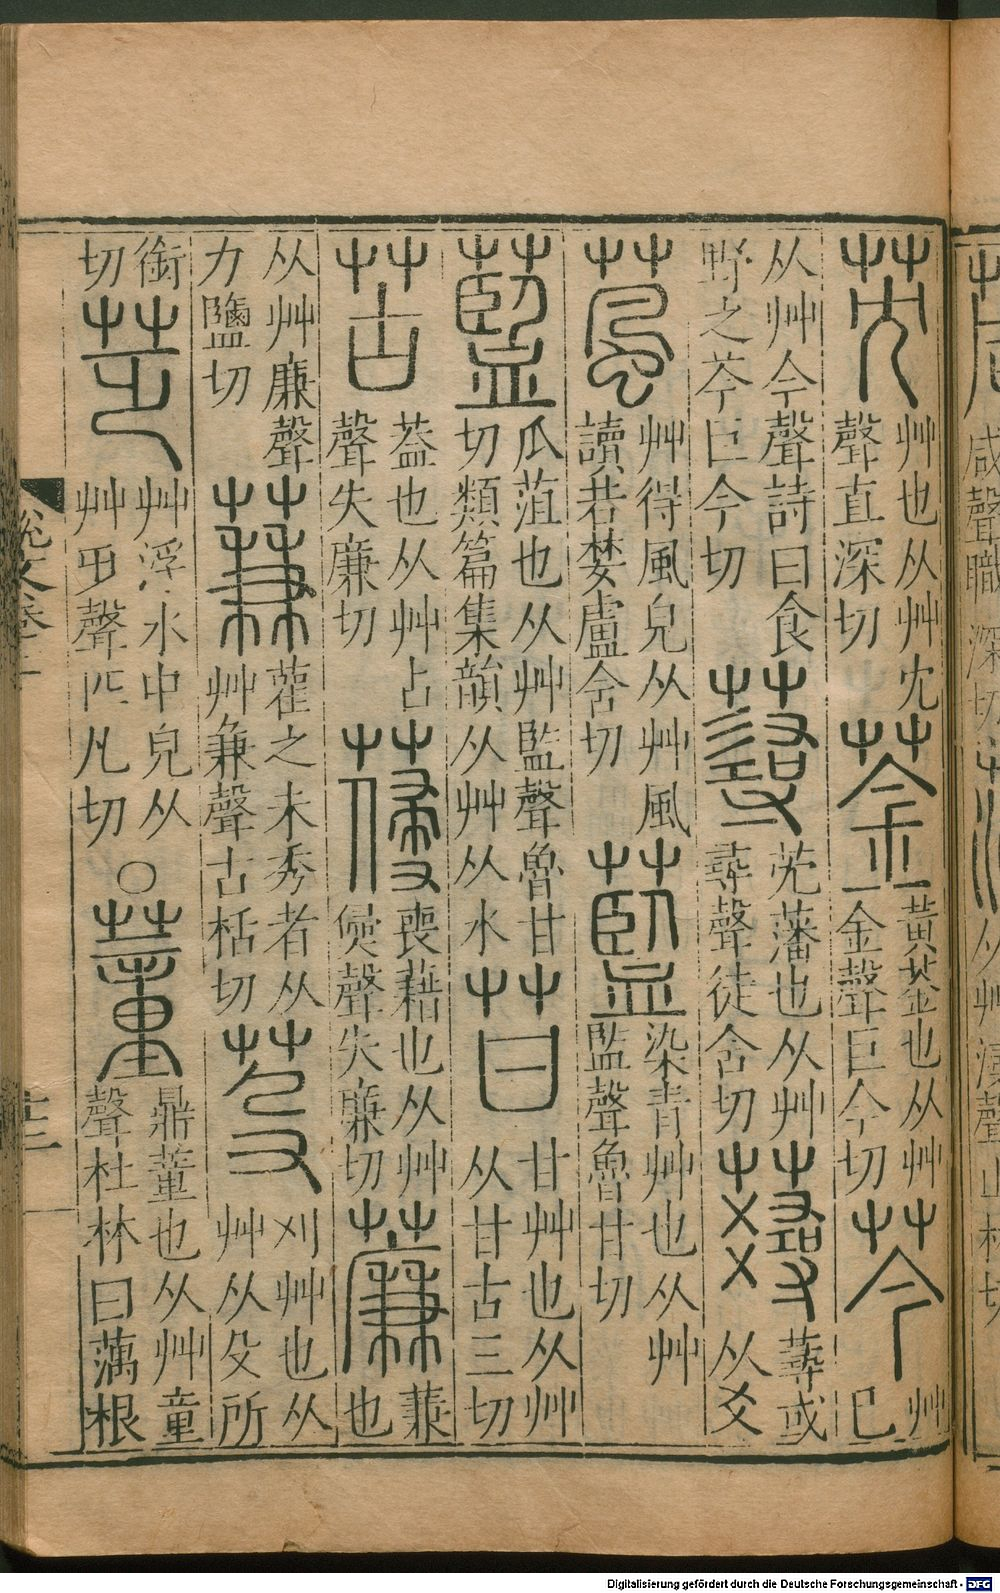 咸聲職深切 从艸浸聲山林切
莐 艸也从艸冘聲直深切 菳 黃菳也从艸金聲巨今切 芩 艸巳
从艸今聲詩曰食野之芩巨今切 蕁 芫藩也从艸尋聲徒含切 𦽅 蕁或从爻
葻 艸得風皃从艸風讀若婪盧含切 藍 染青艸也从艸監聲魯甘切
藍 瓜菹也从艸監聲魯甘切類篇集韻从艸从水 苷 甘艸也从艸从甘古三切
苫 葢也从艸占聲失廉切 葠 喪藉也从艸侵聲失廉切 薕 蒹也
从艸廉聲力鹽切 蒹 雚之未秀者从艸兼聲古恬切 芟 刈艸也从艸从殳所
銜切 芝 艸浮水中皃从艸乏聲匹凡切 ○ 董 鼎董也从艸童聲杜林曰藕根
說文卷一
十三
Digitalisierung gefördert durch die Deutsche Forschungsgemeinschaft - DFG